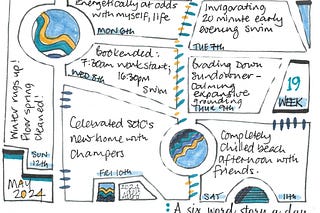 energetically at odds
with myself, life
MON 6TH
Invigorating
20 minute early
evening swim
TUE 7TH
Bookended:
7:30am work start;
16:30pm
swim
WED 8TH
Grading Down
Sundowner -
Calming
expansive
grounding
THUR 9TH
19
WEEK
Winter rugs up!
Floor spring
cleaned
SUN
12TH
MAY
2024
Celebrated SdtC's
new home with
Champers
FRI 10TH
Completely
chilled beach
afternoon with
friends.
SAT
11TH
: A six word story a day